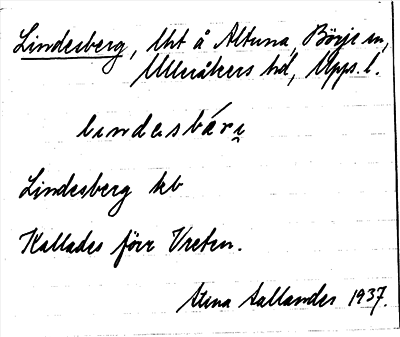 Lindesberg, lht å Altuna, Börje sn,
Ulleråkers hd, Upps. l.
lındasbárı̯
Lindesberg kb
Kallades förr Vreten.
Stina Sallander 1937.